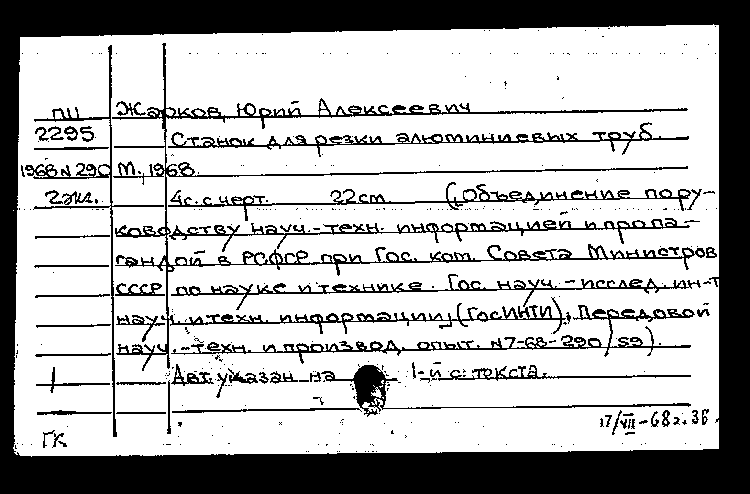 ПЦ Жарков, Юрий Алексеевич
2295 Станок для резки алюминиевых труб.
1968 N 290 М., 1968.
2 экз. 4с. с черт. 22 cm. (Объединение по ру-
ководству науч.-техн. информацией и пропа-
гандой в РСФСР при Гос. ком. Совета Министров
СССР по науке и технике. Гос. науч.-исслед. ин-т
науч. и техн. информации, (ГосИНТИ), Передовой
науч.-техн. и производ. опыт. N7-68-290/59).
1 Авт. указан на 1-й с. текста.
17/VII-68г. ЗБ.
ГК